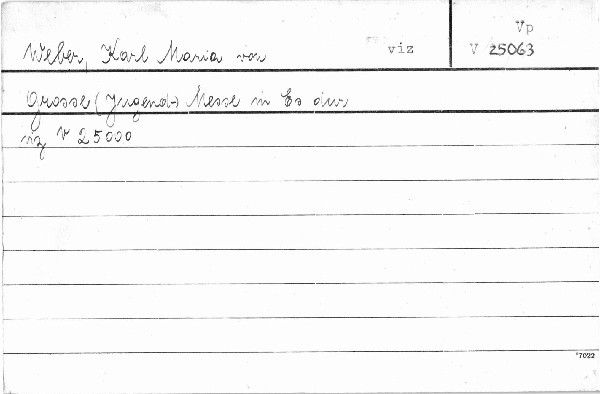 Vp
Weber, Karl Maria von viz V 25063
Grosse (Jugend-) Messe in Es dur
viz V 25000
*7022